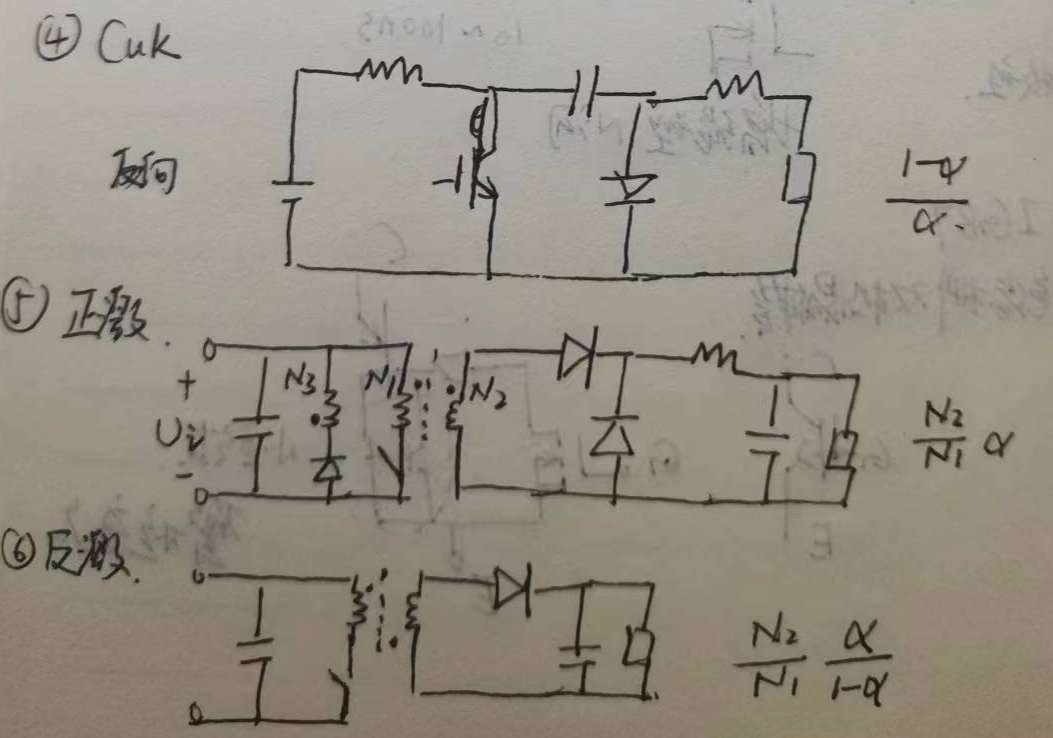 ④ Cuk
反向
1-α
α
⑤ 正激.
+
Ui
-
N3
N1
N2
N2
N1
α
⑥ 反激.
N2
N1
α
1-α